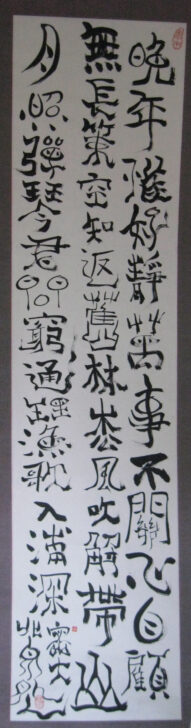 晚年惟好靜萬事不關心自顧
無長策空知返舊林松風吹解帶山
月照彈琴君問窮通理漁歌入浦深